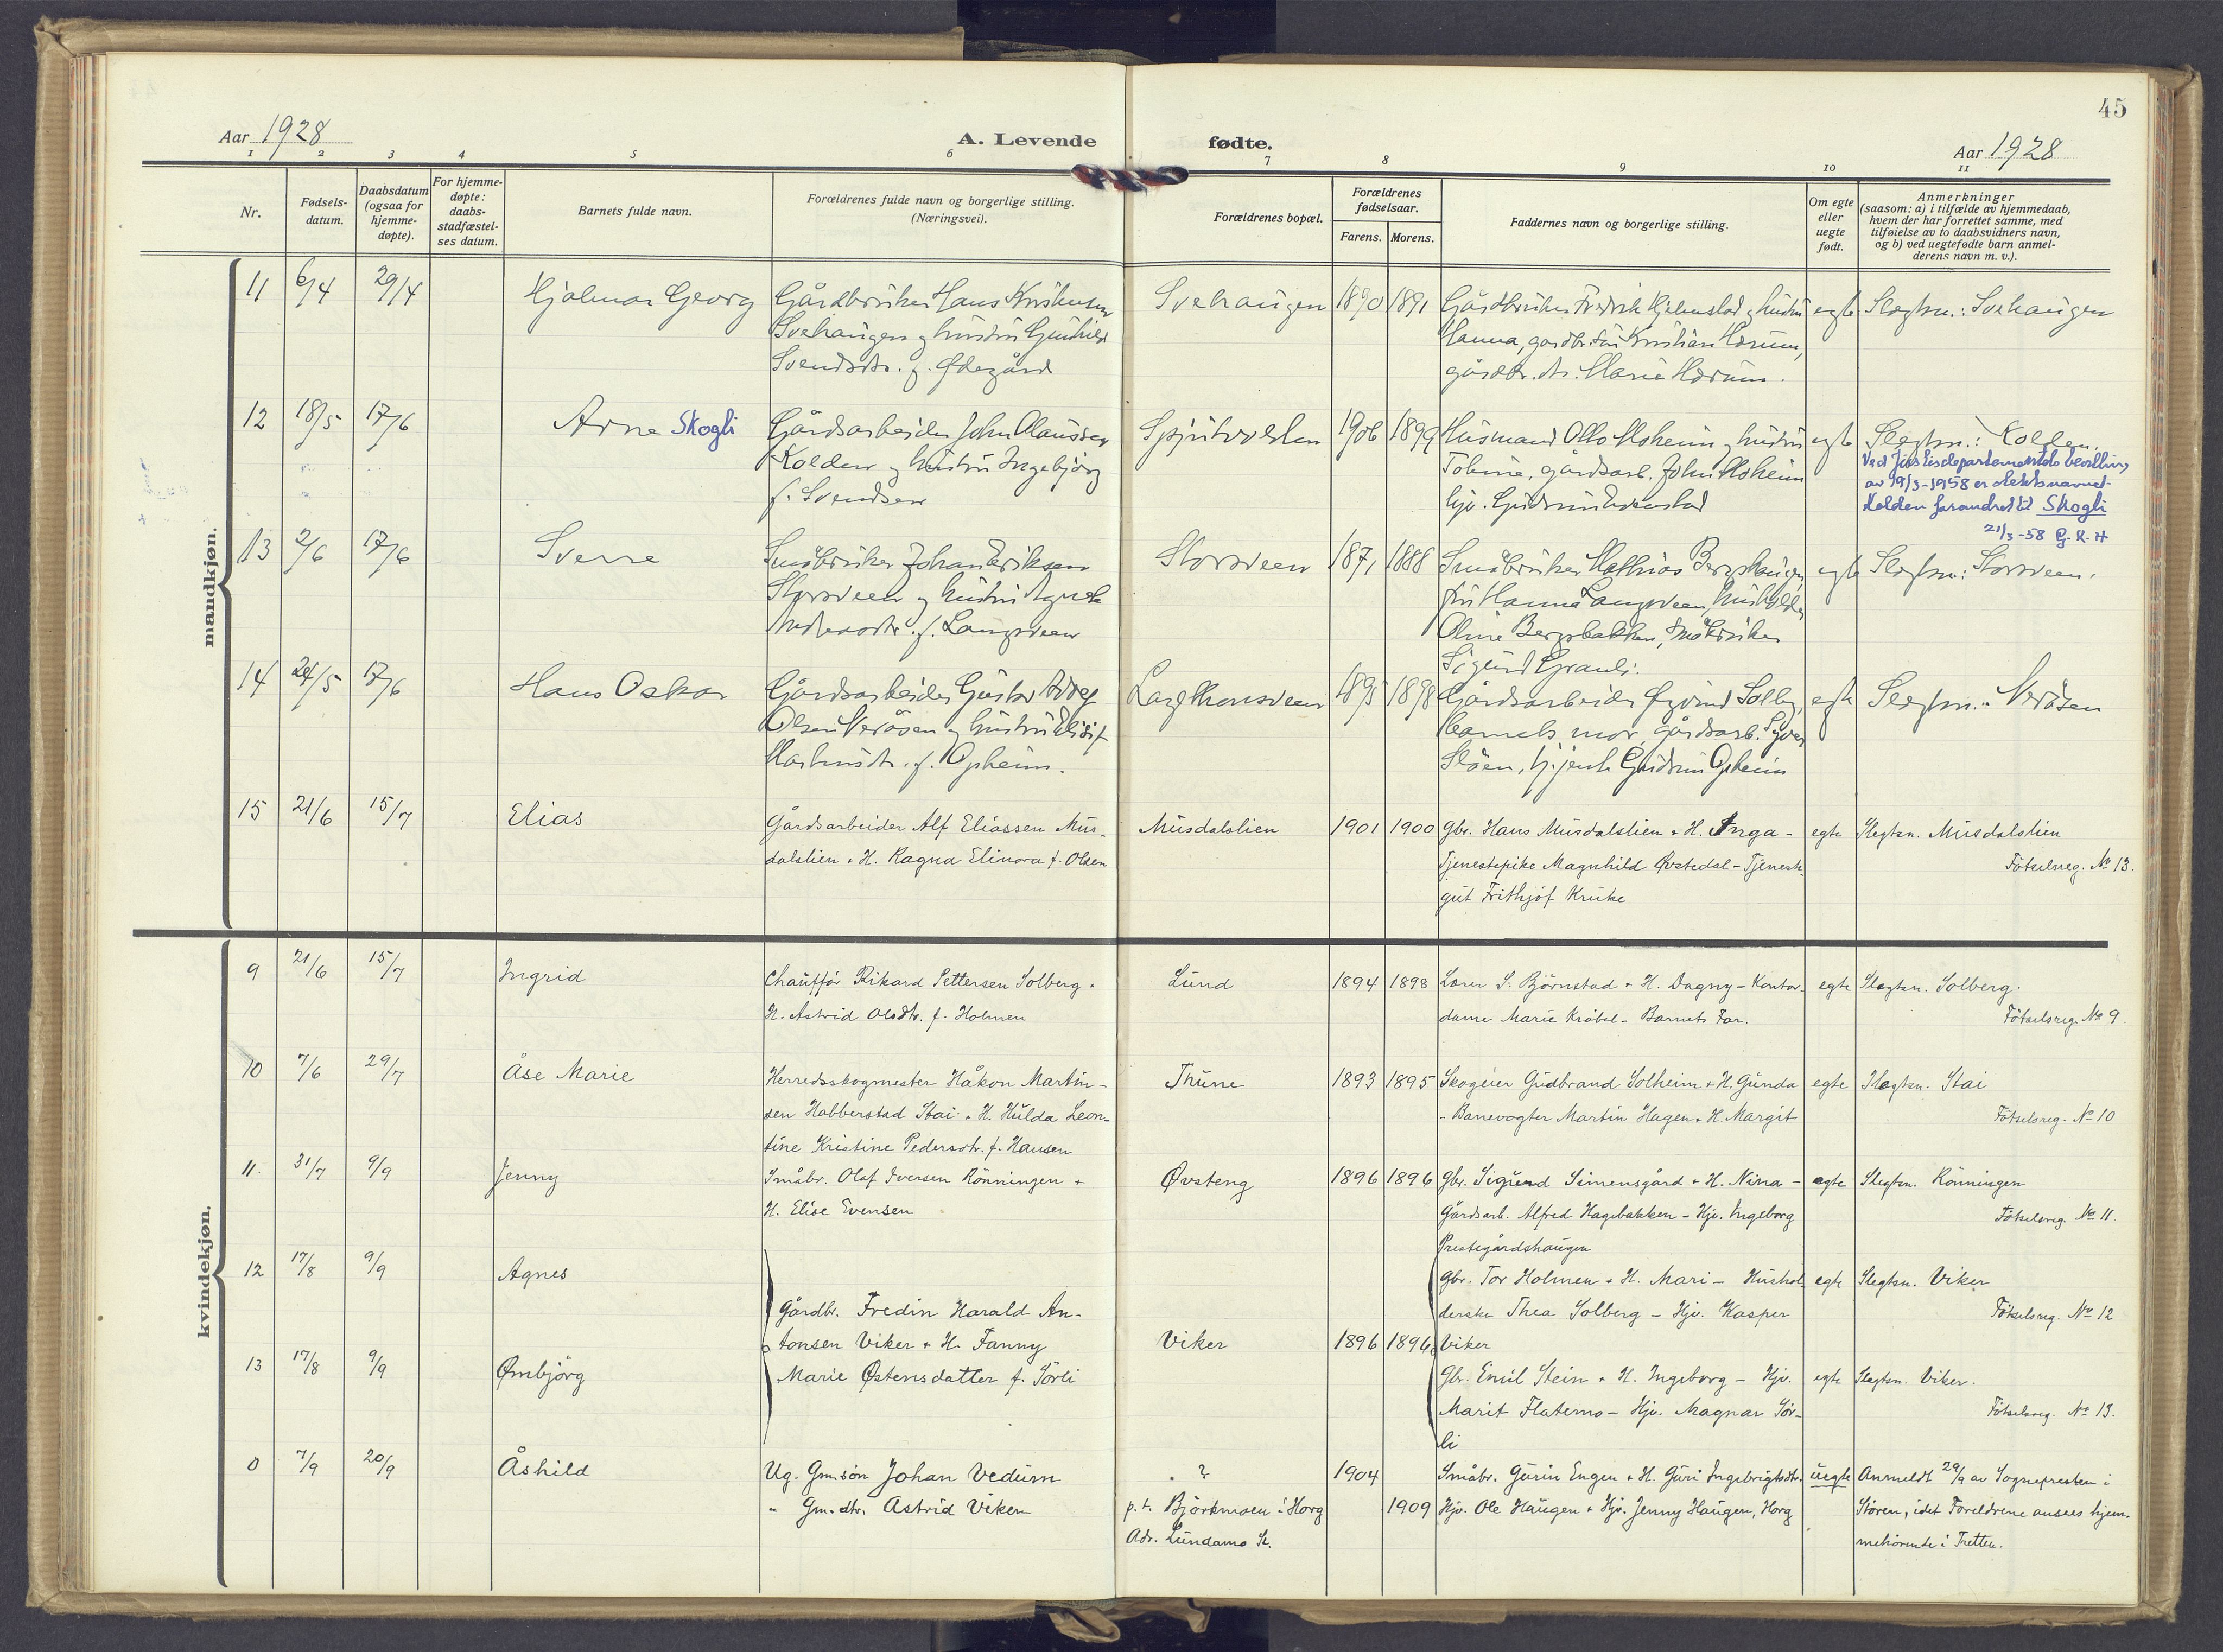 45
Aar 1928
A. Levende fødte.
Aar 1928
1 2 3 4 5 6 7 8 9 10 11
Nr.
Fødsels-
datum.
Daabsdatum
(ogsaa for
hjemme-
døpte).
For hjemme-
døpte:
daabs-
stadfæstel-
ses datum.
Barnets fulde navn.
Forældrenes fulde navn og borgerlige stilling.
(Næringsvei).
Forældrenes bopæl.
Forældrenes
fødselsaar.
Farens. Morens.
Faddernes navn og borgerlige stilling.
Om egte
eller
uegte
født.
Anmerkninger
(saasom: a) i tilfælde av hjemmedaab,
hvem der har forrettet samme, med
tilføielse av to daabsvidners navn,
og b) ved uegtefødte barn anmel-
derens navn m. v.).
mandkjøn.
11 6/4 29/4 Hjalmar Georg
Gårdbruker Hans Kristiansen
Svehaugen og hustru Gunhild
Svendsdtr. f. Ødegård
Svehaugen 1890 1891
Gårdbruker Fredrik Hjelmstad og hustru
Hanna, gardbr. søn Kristian Hærum,
gårdbr. dtr. Marie Hærum.
egte Slegtsn.: Svehaugen
12 18/5 17/6 Arne Skogli
Gårdsarbeider John Olaussen
Kolden og hustru Ingebjørg
f. Svendsen
1906 1899
Husmand Otto Moheim og hustru
Toline, gårdsarb. John Moheim
hjv. Gudrun
egte Slegtsn.: Kolden.
Ved Justisdepartementets bevilling
av 19/3-1958 er slektsnavnet
Kolden forandret til Skogli
21/3-58 G. R. H
13 2/6 17/6 Sverre
Småbruker Johan Eriksen
Storsveen og hustru Agnete
f. Langsveen
Storsveen 1871 1888
Småbruker Mathias Bergshaugen
fru Hanna Langsveen, hushold.
Oline Bergsbakken, småbruker
Sigurd Granli.
egte Slegtsn.: Storsveen.
14 24/5 17/6 Hans Oskar
Gårdsarbeider Gustav Adolf
Olsen Veråsen og hustru
f. Opheim.
1895 1898
Gårdsarbeider Øyvind Solberg,
barnets mor, gårdsarb. Syver
Slåen, tj.jente Gudrun Opheim
egte Slegtsn.: Veråsen
15 21/6 15/7 Elias
Gårdsarbeider Alf Eliassen Mus-
dalslien + H. Ragna Elinora f. Olsen
Musdalslien 1901 1900
Gbr. Hans Musdalslien + H. Inga -
Tjenestepike Magnhild Øvstedal - Tjeneste-
gut Frithjof Kruke
egte Slegtsn. Musdalslien
Fötselreg. No 13.
kvindekjøn.
9 21/6 15/7 Ingrid
Chauffør Rikard Pettersen Solberg +
H. Astrid Olsdtr. f. Holmen
Lund 1894 1898
Lærer S. Björnstad + H. Dagny - Kontor-
dame Marie Kräbel - Barnets Far.
egte Slegtsn. Solberg.
Fötselsreg. No 9.
10 7/6 29/7 Åse Marie
Herredsskogmester Håkon Martin-
sen Habberstad Stai + H. Hulda Leon-
tine Kristine Pedersdtr. f. Hansen
Thune 1893 1895
Skogeier Gudbrand Solheim + H. Gunda
- Banevogter Martin Hagen + H. Margit
egte Slegtsn. Stai
Fötselsreg. No 10
11. 31/7 9/9 Jenny
Småbr. Olaf Iversen Rönningen +
H. Elise Evensen
Øvsteng 1896 1896
Gbr. Sigurd Simensgård + H. Nina -
Gårdsarb. Alfred Hagebakken - Hjv. Ingeborg
Prestegårdshaugen
egte Slegtsn. Rönningen
Fötselsreg. No 11.
12 17/8 9/9 Agnes
Gårdbr. Fredin Harald An-
tonsen Viker + H. Fanny
Marie Østensdatter f. Sörli
Viker 1896 1896
Gbr. Tor Holmen + H. Mari - Hushol-
derske Thea Solberg - Hjv. Kasper
Viker
egte Slegtsn. Viker
Fötselsreg. No 12
13 17/8 9/9 Ørnbjörg
Gbr. Emil Stein + H. Ingeborg - Hjv.
Marit Flatemo - Hjv. Magnar Sör-
li
egte Slegtsn. Viker.
Fötselsreg. No 13.
0 7/9 20/9 Åshild
Ug. Gm.sön Johan Vedum
" Gm.dtr. Astrid Viken
?
p.t. Björkmoen i Horg
Adr. Lundamo St.
1904
1909
Småbr. Gurin Engen + H. Guri Ingebrigtsdtr.
Hjv. Ole Haugen + Hjv. Jenny Haugen, Horg
uegte Anmeldt 29/9 av Sognepresten i
Stören, idet Foreldrene ansees hjem-
mehörende i Tretten.